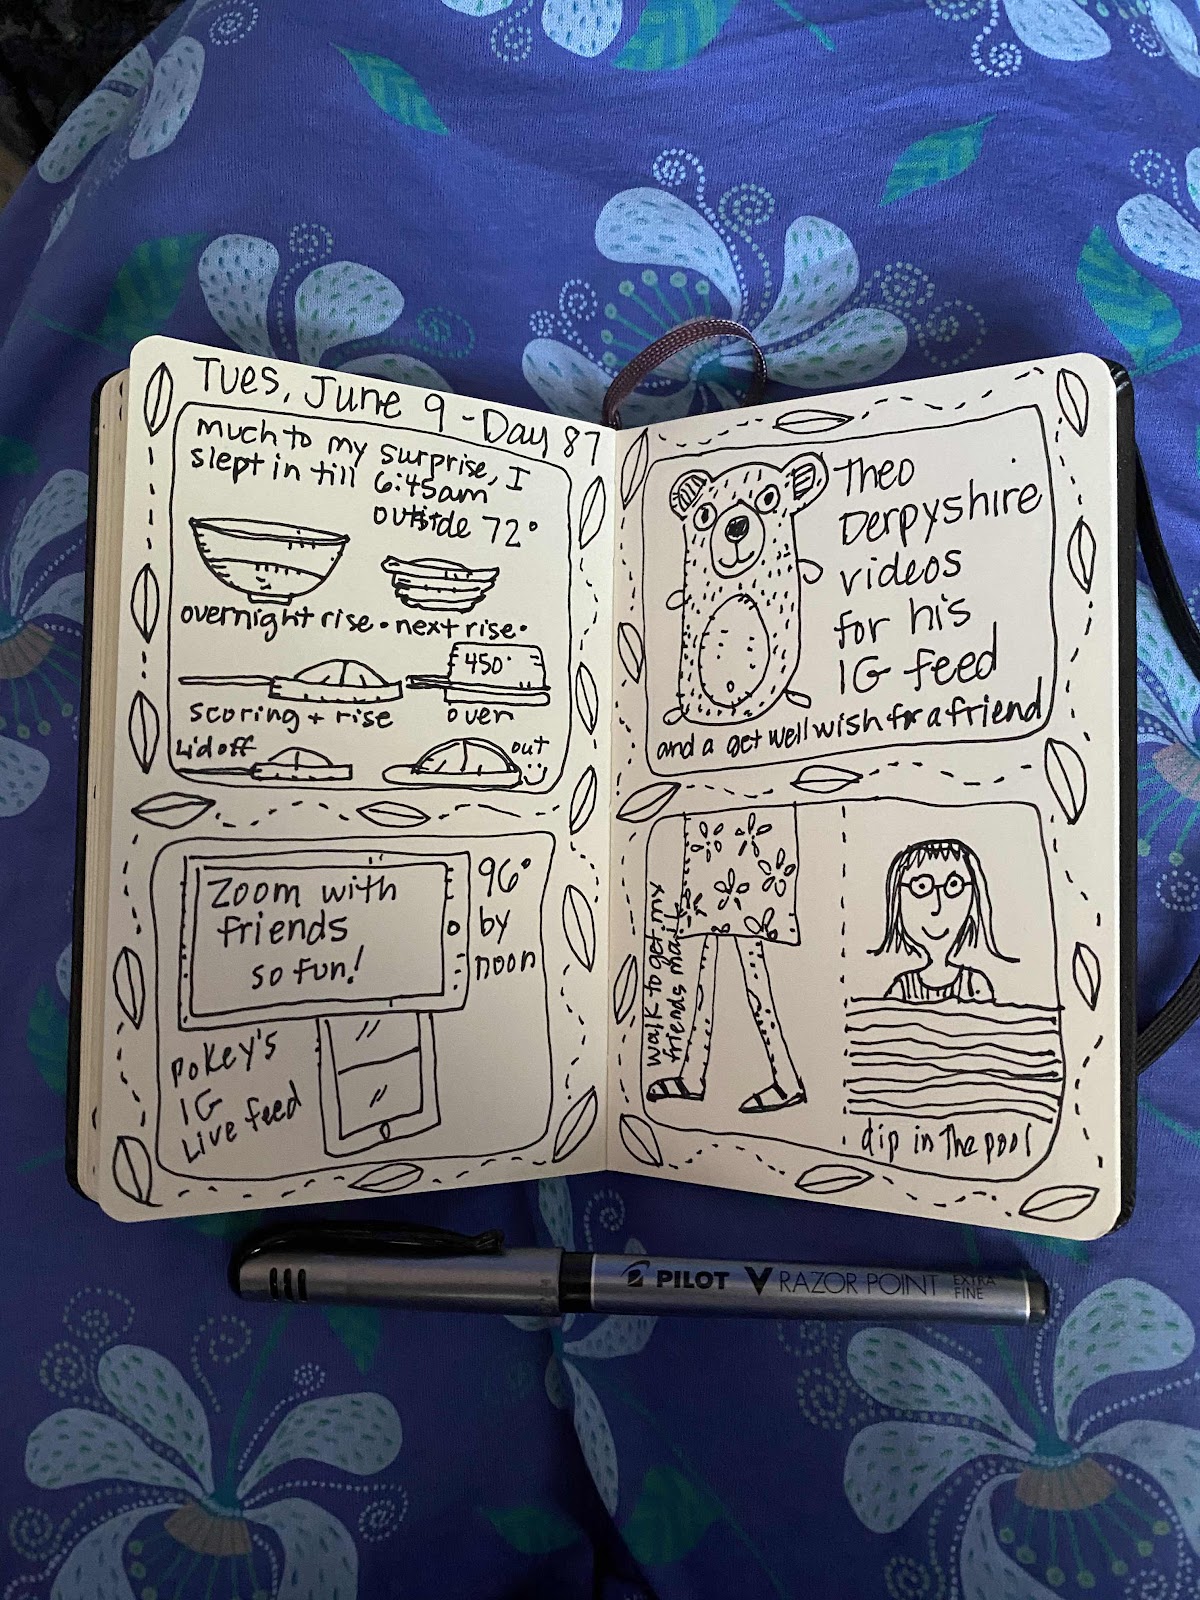 Tues, June 9 - Day 87
much to my surprise, I
slept in till 6:45am
outside 72°
overnight rise • next rise •
450°
scoring + rise
oven
Lid off
out
Zoom with
friends
so fun!
96°
by
noon
Pokey's
IG
Live feed
Theo
Derpyshire
videos
for his
IG feed
and a get well wish for a friend
walk to get my
friends mail
dip in the pool
PILOT V RAZOR POINT EXTRA
FINE